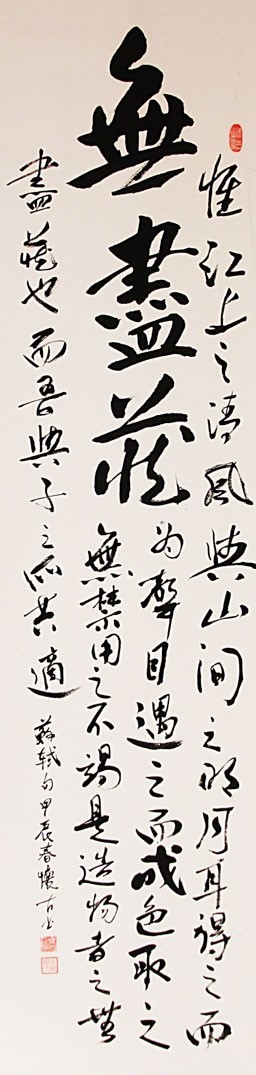 無盡藏
惟江上之清風與山間之明月耳得之而
為聲目遇之而成色取之
無禁用之不竭是造物者之無
盡藏也而吾與子之所共適
蘇軾句甲辰春懷古書